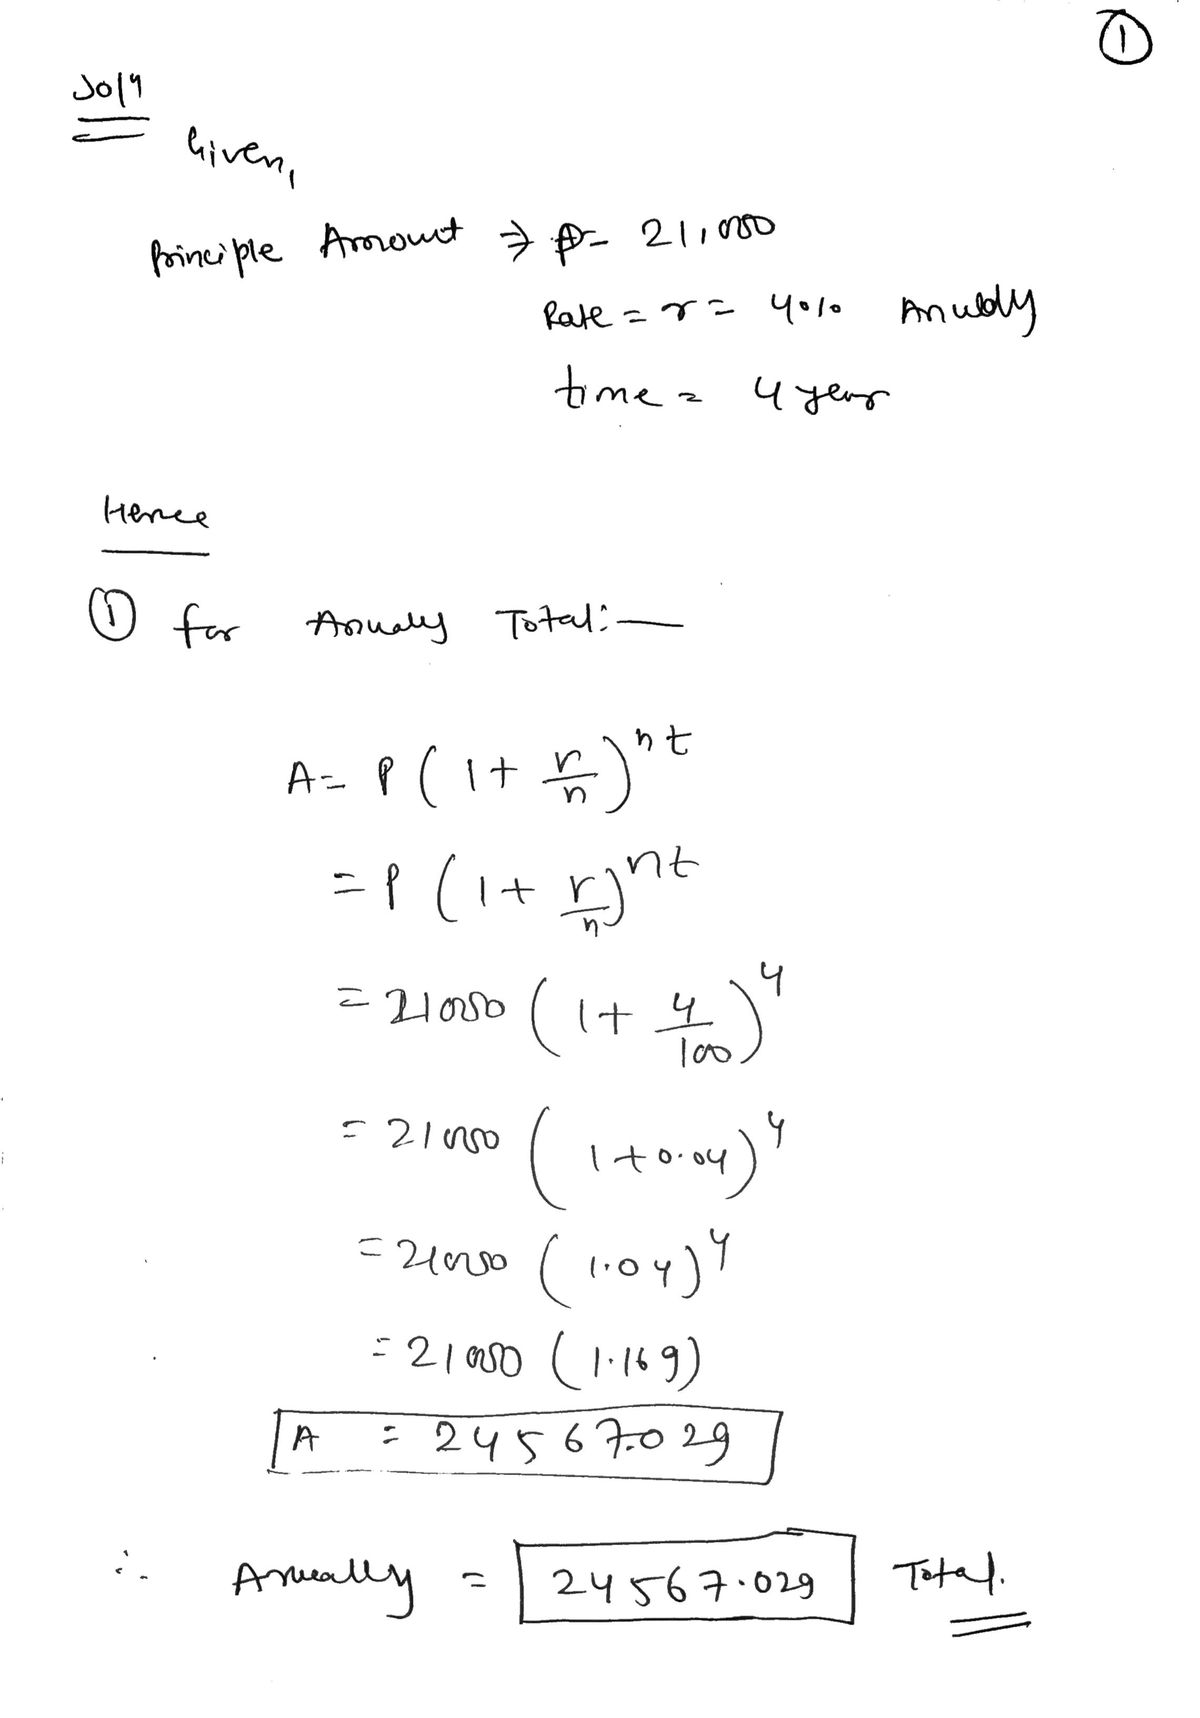 ①
Soln
Given,
Principle Amount ⇒ P= 21,000
Rate = r = 4% Anually
time = 4 year
Hence
① for Anualy Total:—
A= P ( 1 + r/n )^nt
= P ( 1 + r/n )^nt
= 21000 ( 1 + 4/100 )^4
= 21000 ( 1+0.04 )^4
= 21000 ( 1.04 )^4
= 21000 ( 1.169)
A = 24567.029
∴ Anually = 24567.029 Total.